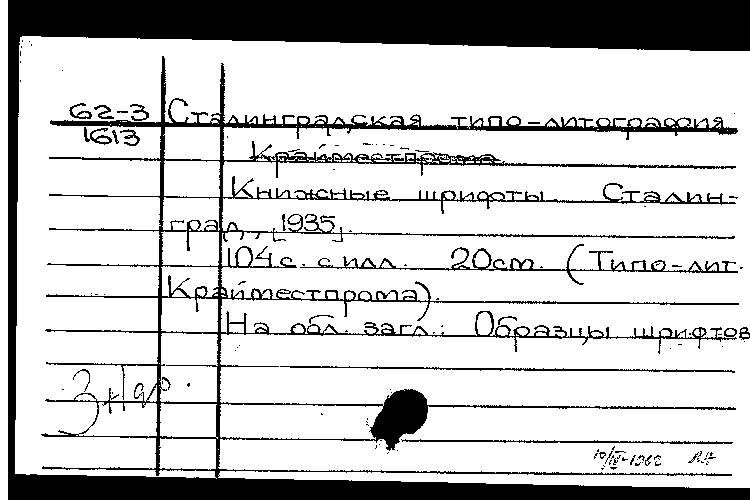 62-3 Сталинградская типо-литография
1613
Крайместпрома
Книжные шрифты. Сталин-
град, [1935].
104 с. с илл. 20 см. (Типо-лит.
Крайместпрома).
На обл. загл.: Образцы шрифтов